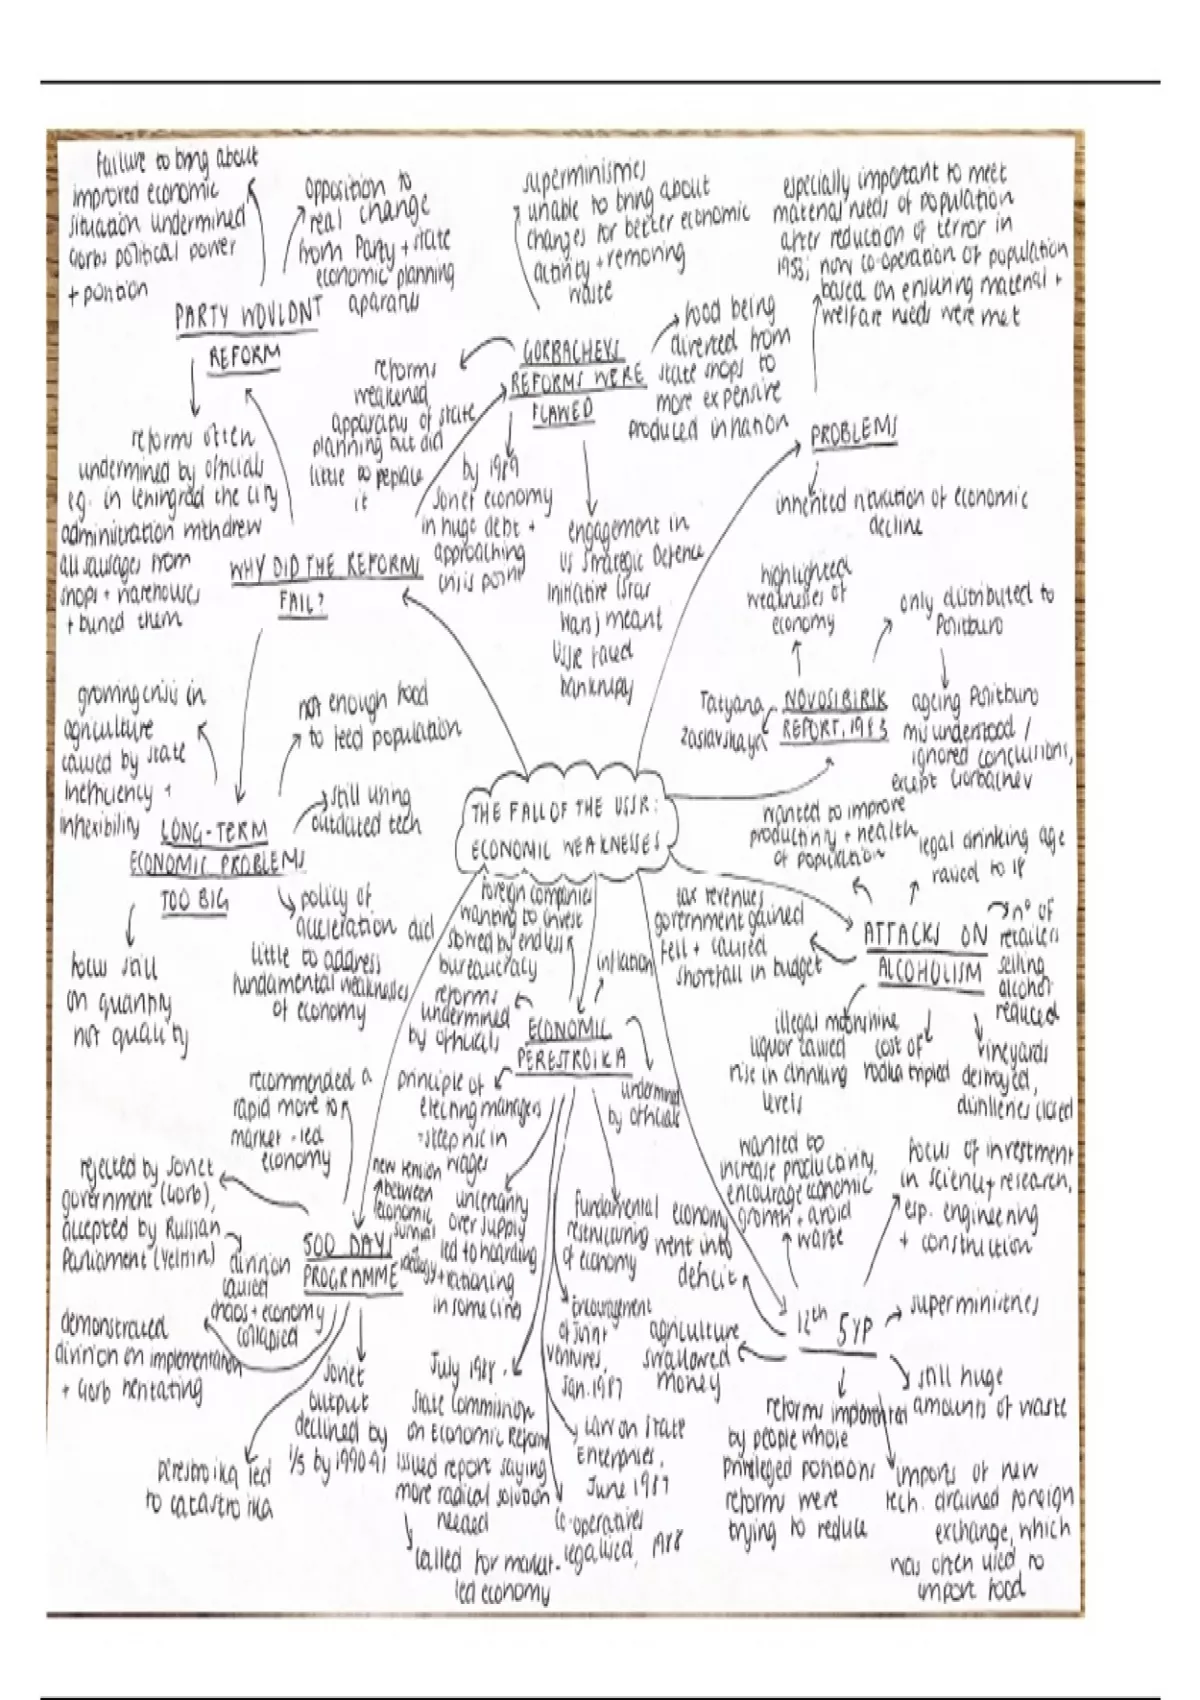 failure to bring about
improved economic
situation undermined
Gorbs political power
+ position
opposition to
real change
from Party + state
economic planning
aparatus
PARTY WOULDNT
REFORM
reforms often
undermined by officials
e.g. in Leningrad the city
administration withdrew
all sausages from
shops + warehouses
+ buried them
superministries
unable to bring about
changes for better economic
activity + removing
waste
GORBACHEVS
REFORMS WERE
FLAWED
reforms
weakened
apparatus of state
planning but did
little to replace
it
food being
diverted from
state shops to
more expensive
produced inflation
by 1989
Soviet economy
in huge debt +
approaching
crisis point
engagement in
US Strategic Defence
Initiative (Star
Wars) meant
USSR faced
bankrupcy
especially important to meet
material needs of population
after reduction of terror in
1953; now co-operation of population
based on ensuring material +
welfare needs were met
PROBLEMS
inherited situation of economic
decline
WHY DID THE REFORMS
FAIL?
highlighted
weaknesses of
economy
only distributed to
Politburo
Tatyana
Zaslavskaya
NOVOSIBIRSK
REPORT, 1983
ageing Politburo
misunderstood /
ignored conclusions,
except Gorbachev
growing crisis in
agriculture
caused by state
inefficiency +
inflexibility
not enough food
to feed population
still using
outdated tech
LONG-TERM
ECONOMIC PROBLEMS
TOO BIG
policy of
acceleration did
little to address
fundamental weaknesses
of economy
focus still
on quantity
not quality
THE FALL OF THE USSR:
ECONOMIC WEAKNESSES
wanted to improve
productivity + health
of population
legal drinking age
raised to 18
ATTACKS ON
ALCOHOLISM
no of
retailers
selling
alcohol
reduced
tax revenues
government gained
fell + caused
shortfall in budget
illegal moonshine
liquor caused
rise in drinking
levels
cost of
vodka tripled
vineyards
destroyed,
distilleries closed
foreign companies
wanting to invest
slowed by endless
bureaucracy
inflation
reforms
undermined
by officials
ECONOMIC
PERESTROIKA
undermined
by officials
principle of
electing managers
- steep rise in
wages
uncertainty
over supply
led to hoarding
+ rationing
in some cities
fundamental
restructuring
of economy
encouragement
of joint
ventures,
Jan. 1987
Law on State
Enterprises,
June 1987
co-operatives
legalised, 1988
July 1988 -
State Commission
on Economic Reform
issued report saying
more radical solution
needed
called for market-
led economy
recommended a
rapid move to
market-led
economy
rejected by Soviet
government (Gorb),
accepted by Russian
Parliament (Yeltsin)
500 DAY
PROGRAMME
new tension
between
economic
survival
+ ideology
division
caused
chaos + economy
collapsed
demonstrated
division on implementation
+ Gorb hesitating
Soviet
output
declined by
1/5 by 1990-91
perestroika led
to catastroika
wanted to
increase productivity,
encourage economic
growth + avoid
waste
focus of investment
in science + research,
esp. engineering
+ construction
economy
went into
deficit
12th 5YP
superministries
agriculture
swallowed
money
still huge
amounts of waste
reforms implemented
by people whose
privileged positions
reforms were
trying to reduce
imports of new
tech. drained foreign
exchange, which
was often used to
import food